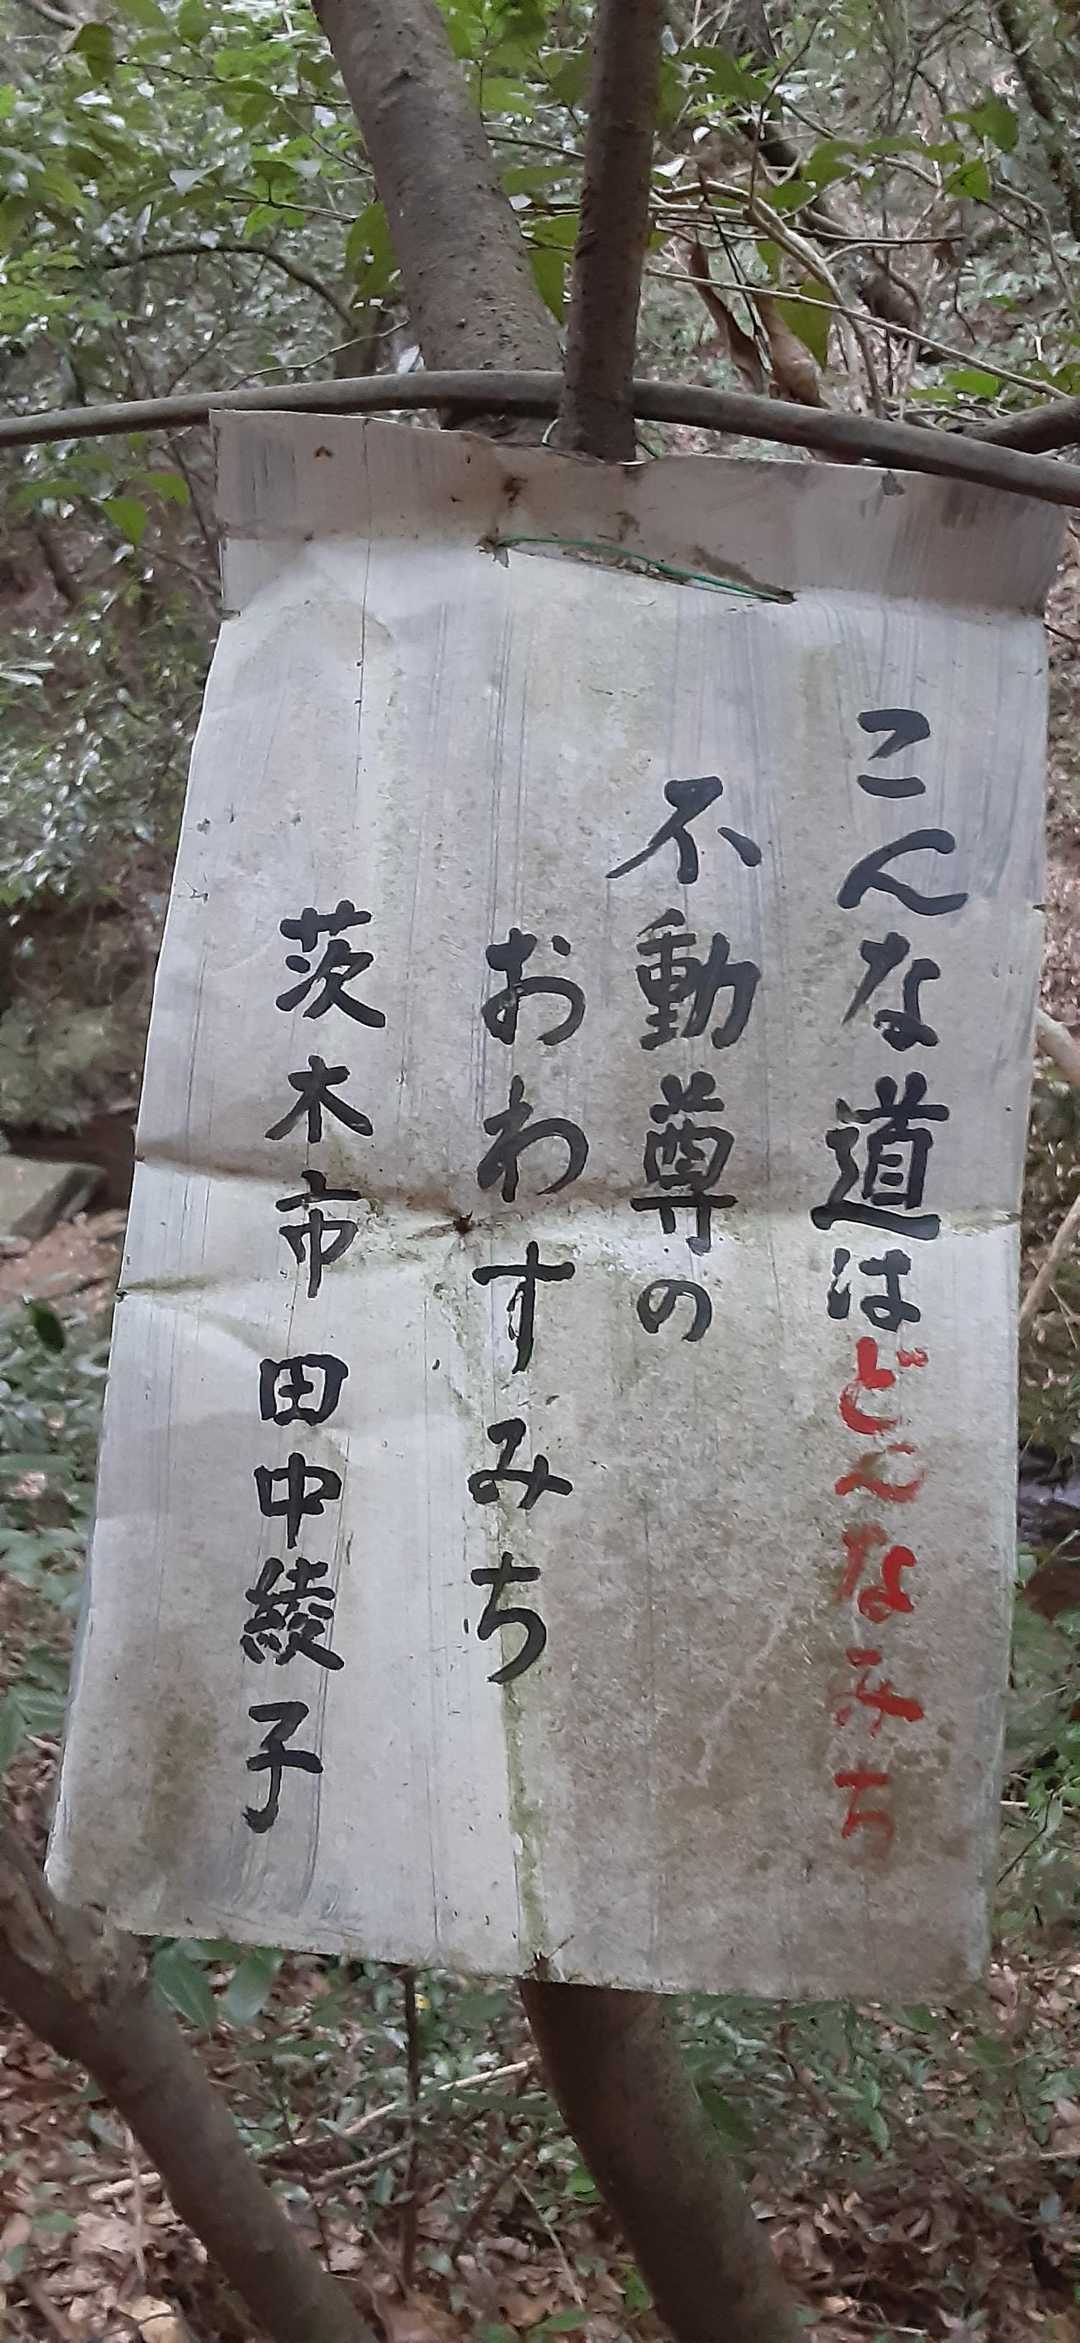 こんな道はどんなみち
不動尊の
おわすみち
茨木市 田中綾子